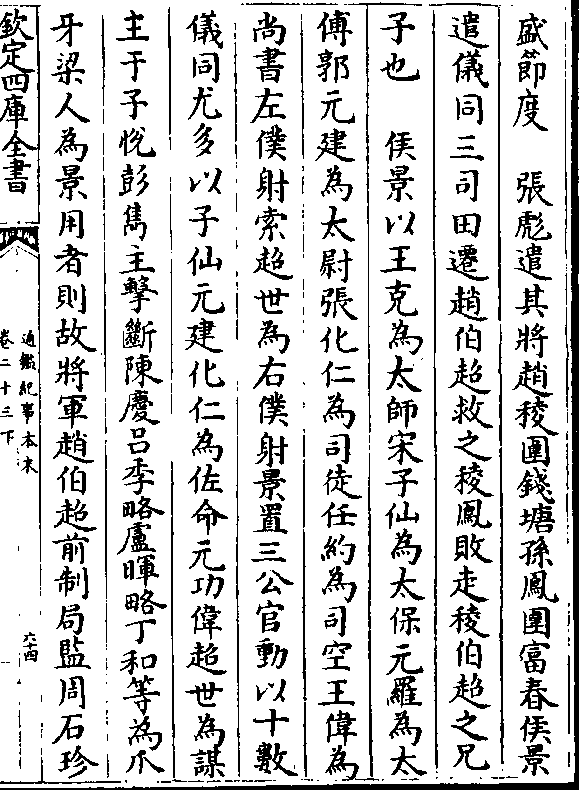 盛節度　張彪遣其將趙稜圍錢塘孫鳳圍富春侯景
遣儀同三司田遷趙伯超救之稜鳳敗走稜伯超之兄
子也　侯景以王克為太師宋子仙為太保元羅為太
傅郭元建為太尉張化仁為司徒任約為司空王偉為
尚書左僕射索超世為右僕射景置三公官動以十數
儀同尤多以子仙元建化仁為佐命元功偉超世為謀
主于子悅彭雋主擊斷陳慶呂季略盧暉略丁和等為爪
牙梁人為景用者則故將軍趙伯超前制局監周石珍
欽定四庫全書
通鑑紀事本末
卷二十三下
六十四